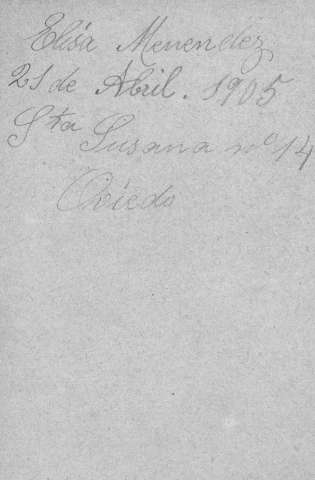 Elisa Menendez
21 de Abril. 1905
Sta Susana nº 14
Oviedo